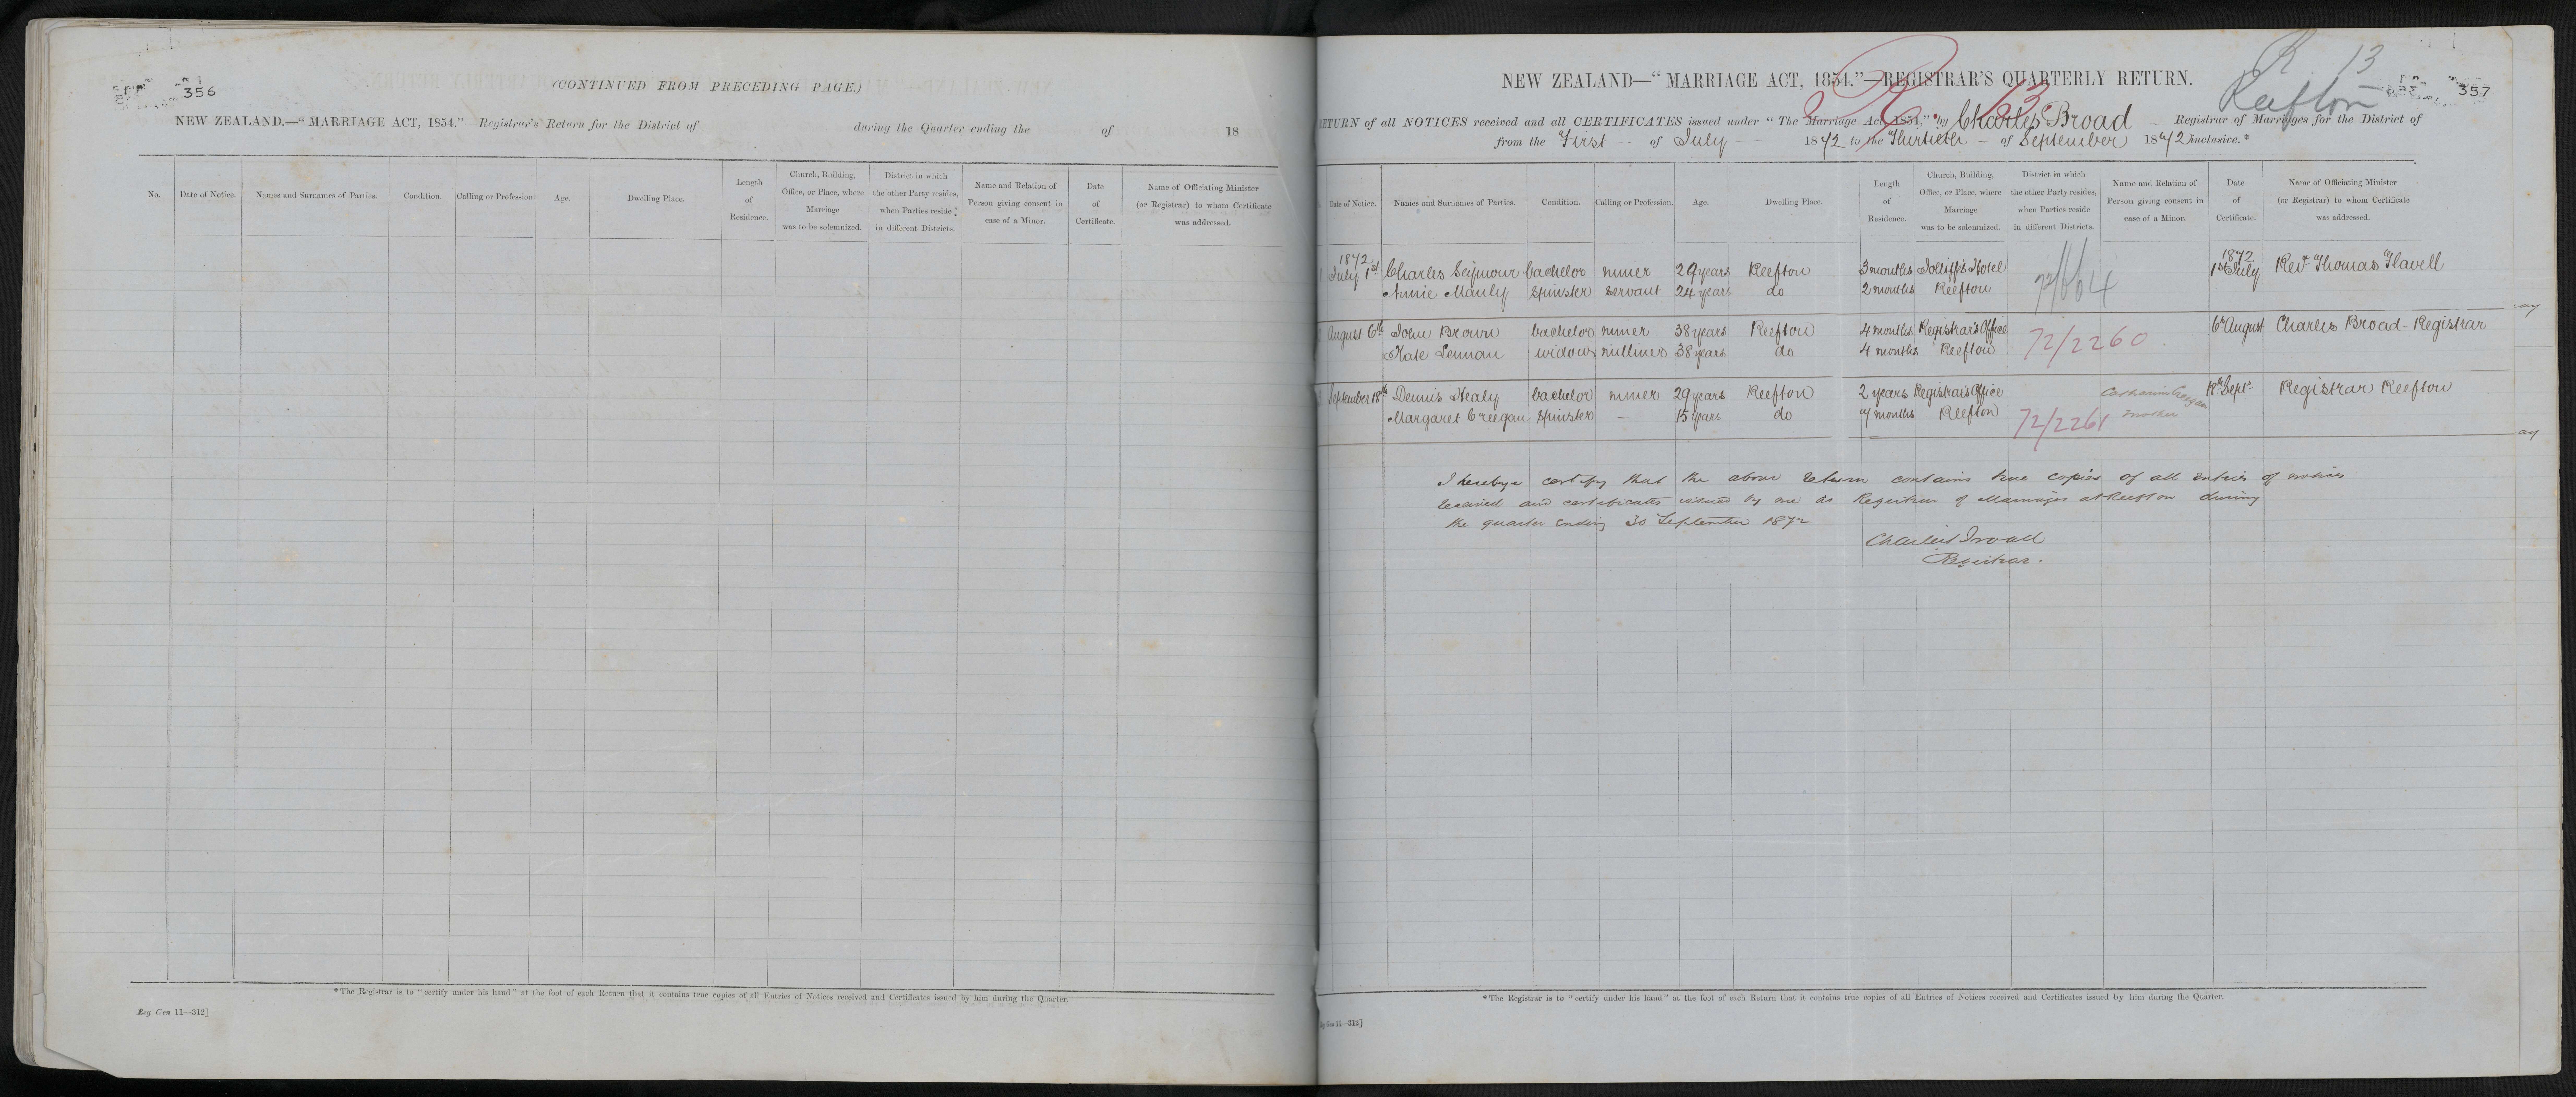 356
(CONTINUED FROM PRECEDING PAGE.)
NEW ZEALAND.—"MARRIAGE ACT, 1854."—Registrar's Return for the District of during the Quarter ending the of 18
No.
Date of Notice.
Names and Surnames of Parties.
Condition.
Calling or Profession.
Age.
Dwelling Place.
Length
of
Residence.
Church, Building,
Office, or Place, where
Marriage
was to be solemnized.
District in which
the other Party resides,
when Parties reside
in different Districts.
Name and Relation of
Person giving consent in
case of a Minor.
Date
of
Certificate.
Name of Officiating Minister
(or Registrar) to whom Certificate
was addressed.
*The Registrar is to "certify under his hand" at the foot of each Return that it contains true copies of all Entries of Notices received and Certificates issued by him during the Quarter.
Reg Gen 11—312]
R 13
357
NEW ZEALAND—"MARRIAGE ACT, 1854."—REGISTRAR'S QUARTERLY RETURN.
Reefton
R 13
RETURN of all NOTICES received and all CERTIFICATES issued under "The Marriage Act, 1854," by Charles Broad Registrar of Marriages for the District of
from the First of July 1872 to the Thirtieth of September 1872 inclusive.*
Date of Notice.
Names and Surnames of Parties.
Condition.
Calling or Profession.
Age.
Dwelling Place.
Length
of
Residence.
Church, Building,
Office, or Place, where
Marriage
was to be solemnized.
District in which
the other Party resides,
when Parties reside
in different Districts.
Name and Relation of
Person giving consent in
case of a Minor.
Date
of
Certificate.
Name of Officiating Minister
(or Registrar) to whom Certificate
was addressed.
1872 1872
July 1st Charles Seymour bachelor miner 29 years Reefton 3 months Jolliff's Hotel 1st July Revd Thomas Flavell
Annie Manly Spinster Servant 24 years do 2 months Reefton 72/664
August 6th John Brown bachelor miner 38 years Reefton 4 months Registrar's Office 6th August Charles Broad - Registrar
Kate Lennan widow milliner 38 years do 4 months Reefton 72/2260
September 18th Dennis Healy bachelor miner 29 years Reefton 2 years Registrar's Office Catharine Creegan 18th Sept. Registrar Reefton
Margaret Creegan Spinster — 15 years do 7 months Reefton 72/2261 mother
I hereby certify that the above return contains true copies of all entries of notices
received and certificates issued by me as Registrar of Marriages at Reefton during
the quarter ending 30 September 1872
Charles Broad
Registrar.
*The Registrar is to "certify under his hand" at the foot of each Return that it contains true copies of all Entries of Notices received and Certificates issued by him during the Quarter.
Reg Gen 11—312]